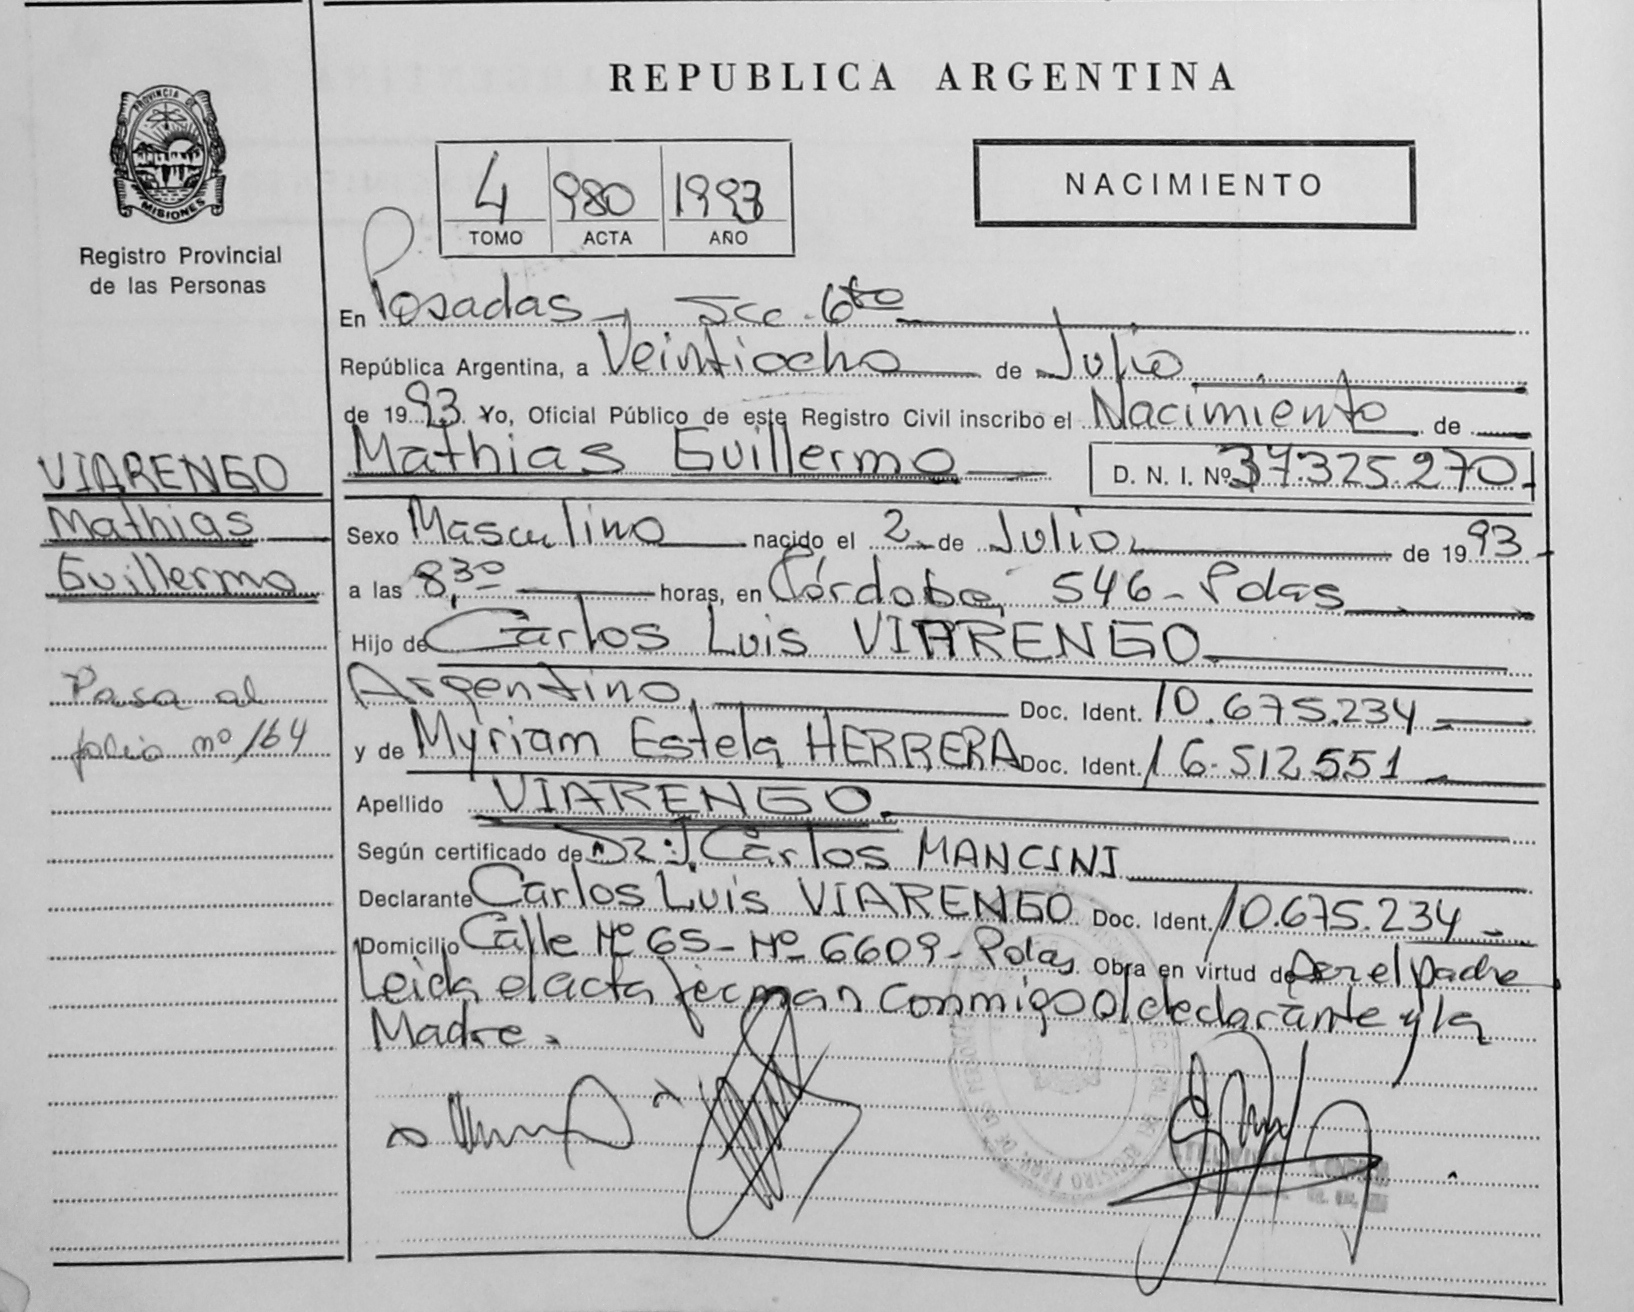 REPUBLICA ARGENTINA
PROVINCIA DE
MISIONES
Registro Provincial
de las Personas
4 980 1993
TOMO ACTA AÑO
NACIMIENTO
En Posadas - Scc. 6ta
República Argentina, a Veintiocho de Julio
de 1993. Yo, Oficial Público de este Registro Civil inscribo el Nacimiento de
Mathias Guillermo D. N. I. Nº 37.325.270
Sexo Masculino nacido el 2 de Julio de 1993
a las 8,30 horas, en Córdoba 546 - Pdas
Hijo de Carlos Luis VIARENGO
Argentino, Doc. Ident. 10.675.234
y de Myriam Estela HERRERA Doc. Ident. 16.512.551
Apellido VIARENGO.
Según certificado de Dr. J. Carlos MANCINI
Declarante Carlos Luis VIARENGO Doc. Ident. 10.675.234
Domicilio Calle Nº 65 - Nº 6609 - Pdas Obra en virtud de ser el padre
Leida el acta firman conmigo el declarante y la
Madre.
VIARENGO
Mathias
Guillermo
Pasa al
folio nº 164